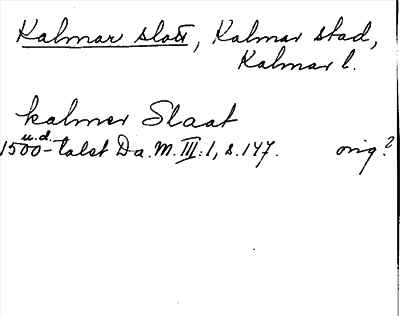 Kalmar slott, Kalmar stad,
Kalmar l.
kalmer Slaat
u.d.
1500-talet Da. M. III:1, s. 147. orig?